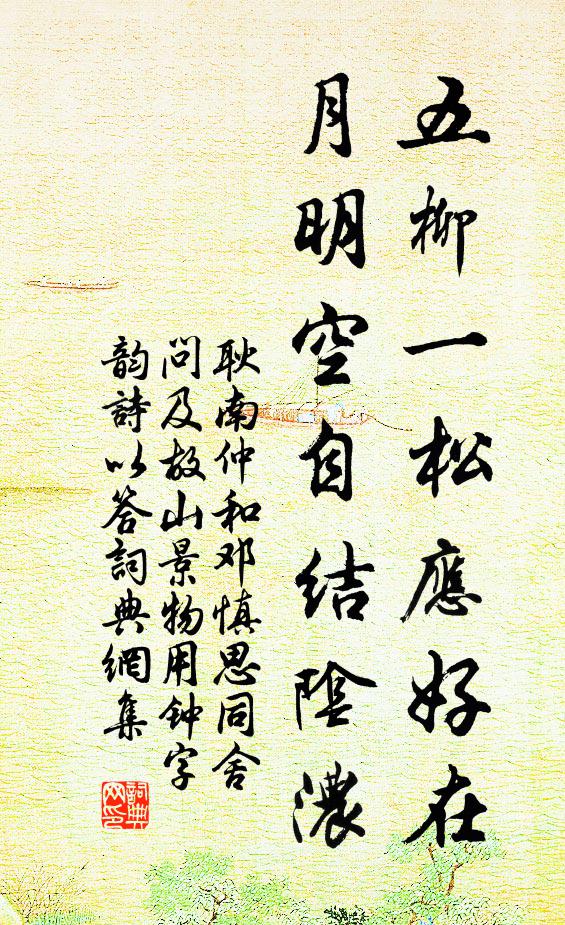 五柳一松應好在
月明空自結陰濃
耿南仲和邓慎思同舍
问及故山景物用钟字
韵詩以答詞典網集
詞典
网印